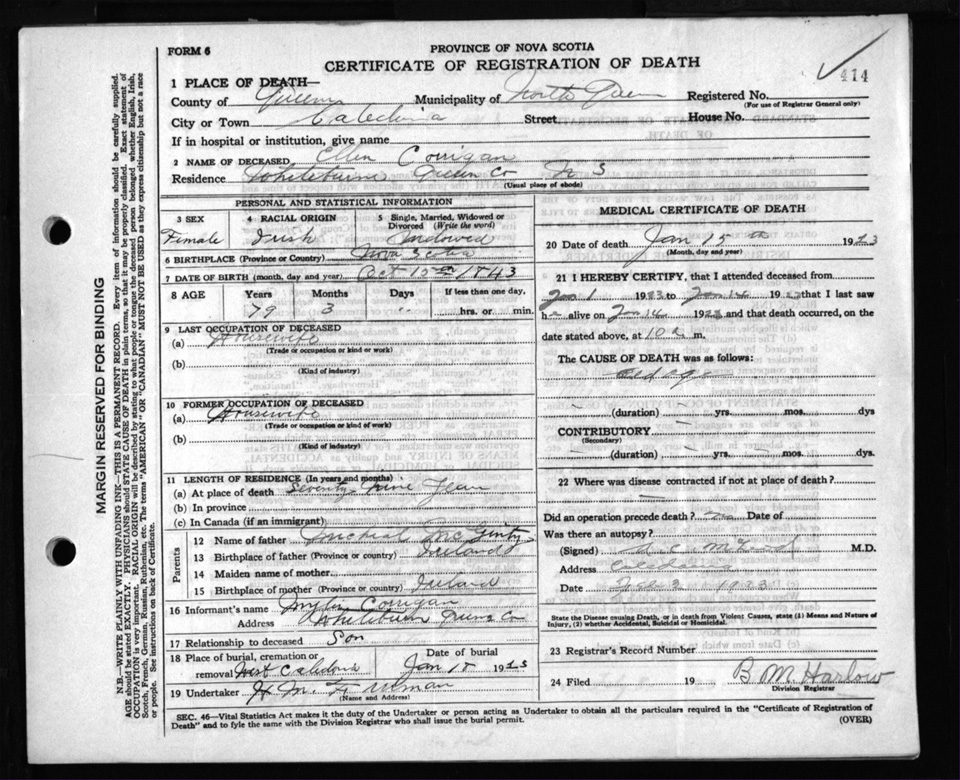 FORM 6
PROVINCE OF NOVA SCOTIA
CERTIFICATE OF REGISTRATION OF DEATH
414
1 PLACE OF DEATH—
County of Queens Municipality of North Queen Registered No.
(For use of Registrar General only)
City or Town Caledonia Street House No.
If in hospital or institution, give name
2 NAME OF DECEASED Ellen Corrigan
Residence Whiteburne Queen Co N S
(Usual place of abode)
PERSONAL AND STATISTICAL INFORMATION
3 SEX 4 RACIAL ORIGIN 5 Single, Married, Widowed or Divorced (Write the word)
Female Irish Widowed
6 BIRTHPLACE (Province or Country) Nova Scotia
7 DATE OF BIRTH (month, day and year) Oct 15 1843
8 AGE Years Months Days If less than one day,
79 3 hrs. or min.
9 LAST OCCUPATION OF DECEASED
(a) Housewife
(Trade or occupation or kind or work)
(b)
(Kind of industry)
10 FORMER OCCUPATION OF DECEASED
(a) Housewife
(Trade or occupation or kind or work)
(b)
(Kind of industry)
11 LENGTH OF RESIDENCE (In years and months)
(a) At place of death Seventy nine Years
(b) In province
(c) In Canada (if an immigrant)
Parents
12 Name of father Micheal McGinty
13 Birthplace of father (Province or country) Ireland
14 Maiden name of mother
15 Birthplace of mother (Province or country) Ireland
16 Informant's name Myles Corrigan
Address Whiteburn Queens Co
17 Relationship to deceased Son
18 Place of burial, cremation or removal West Caledonia Date of burial Jan 18 1923
19 Undertaker H M
(Name and Address)
MEDICAL CERTIFICATE OF DEATH
20 Date of death Jan 15th 1923
(Month, day and year)
21 I HEREBY CERTIFY, that I attended deceased from
Jan 1 1923 to Jan 14 1923 that I last saw
h alive on Jan 14 1923 and that death occurred, on
date stated above, at 10 a m.
The CAUSE OF DEATH was as follows:
old age
(duration) yrs. mos. dys
CONTRIBUTORY
(Secondary)
(duration) yrs. mos. dys.
22 Where was disease contracted if not at place of death?
Did an operation precede death? no Date of
Was there an autopsy?
(Signed) M.D.
Address Caledonia
Date Feb 2 1923
State the Disease causing Death, or in death from Violent Causes, state (1) Means and Nature of Injury, (2) whether Accidental, Suicidal or Homicidal.
23 Registrar's Record Number
24 Filed 19 B M. Harlow
Division Registrar
SEC. 46—Vital Statistics Act makes it the duty of the Undertaker or person acting as Undertaker to obtain all the particulars required in the "Certificate of Registration of
Death" and to fyle the same with the Division Registrar who shall issue the burial permit. (OVER)
MARGIN RESERVED FOR BINDING
N.B.—WRITE PLAINLY WITH UNFADING INK—THIS IS A PERMANENT RECORD. Every item of information should be carefully supplied.
AGE should be stated EXACTLY. PHYSICIANS should STATE CAUSE OF DEATH in plain terms, so that it may be properly classified. Exact statement of
OCCUPATION is very important. RACIAL ORIGIN will be described by stating to what people or tongue the deceased person belonged whether English, Irish,
Scotch, French, German, Russian, Ruthenian, etc. The terms "AMERICAN" OR "CANADIAN" MUST NOT BE USED as they express citizenship but not a race
or people. See instructions on back of Certificate.